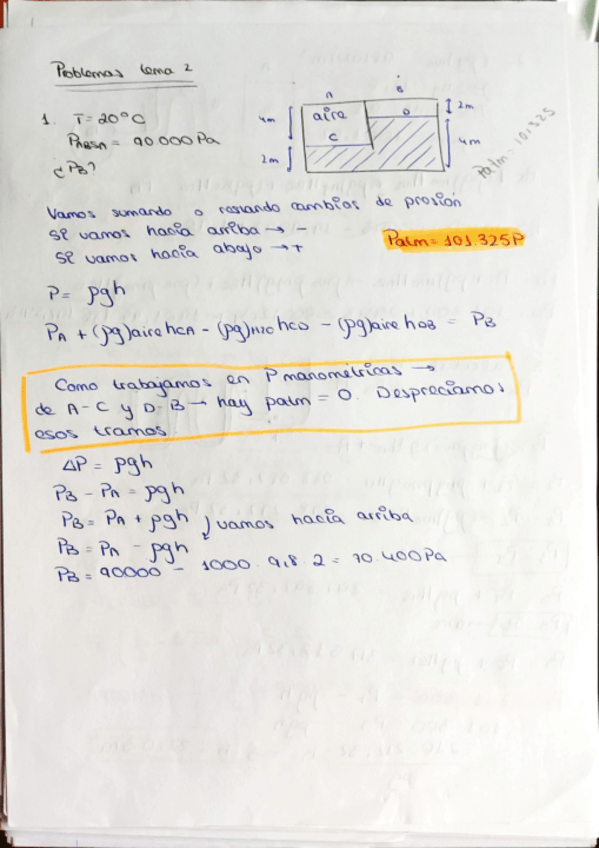 Problemas tema 2
1. T = 20°C
PABSA = 90.000 Pa
¿PB?
A B
4m aire 2m
C D
2m 4m
Patm = 101.325
Vamos sumando o restando cambios de presión
Si vamos hacia arriba → -
Si vamos hacia abajo → +
Patm = 101.325P
P = ρgh
PA + (ρg)aire hCA - (ρg)H2O hCD - (ρg)aire hDB = PB
Como trabajamos en P manométricas →
de A-C y D-B → hay patm = 0. Despreciamos
esos tramos.
ΔP = ρgh
PB - PA = ρgh
PB = PA + ρgh
vamos hacia arriba
PB = PA - ρgh
PB = 90000 - 1000 · 9,8 · 2 = 70.400 Pa